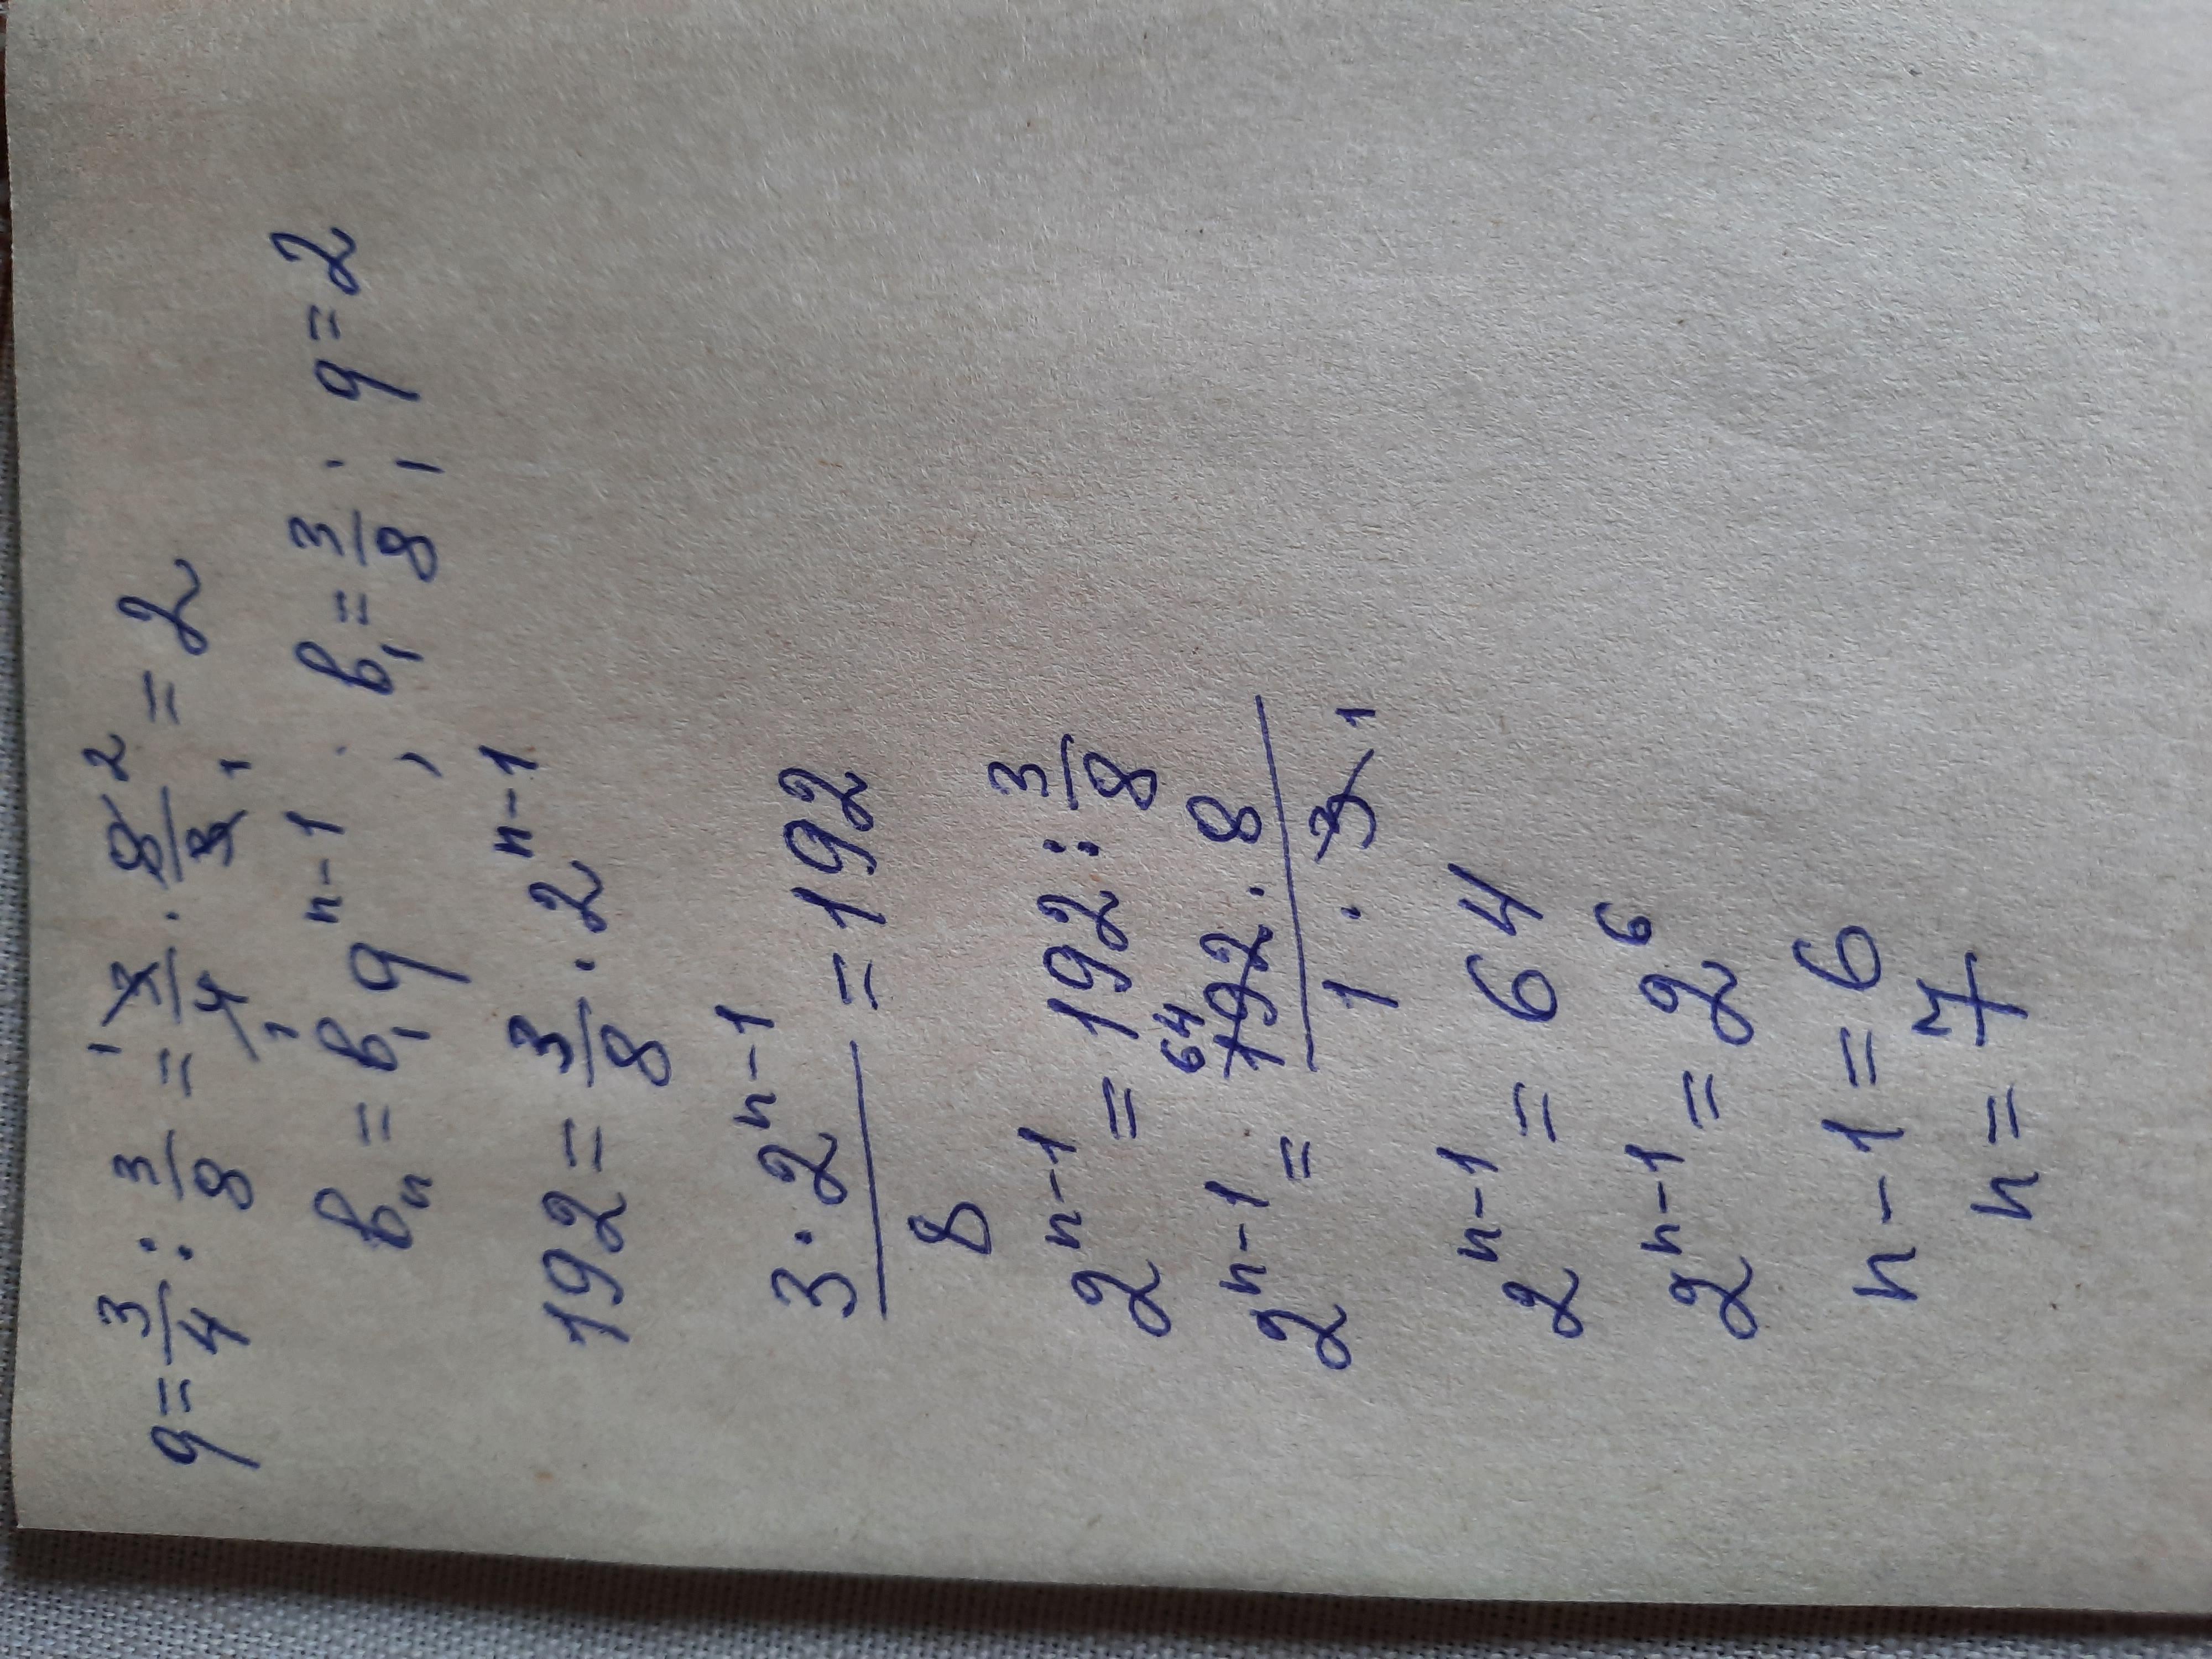 q = 3/4 : 3/8 = 3/4 · 8/3 = 2
bₙ = b₁qⁿ⁻¹ ; b₁ = 3/8 ; q = 2
192 = 3/8 · 2ⁿ⁻¹
3 · 2ⁿ⁻¹/8 = 192
2ⁿ⁻¹ = 192 : 3/8
2ⁿ⁻¹ = 192 · 8/1 · 3
2ⁿ⁻¹ = 64
2ⁿ⁻¹ = 2⁶
n - 1 = 6
n = 7